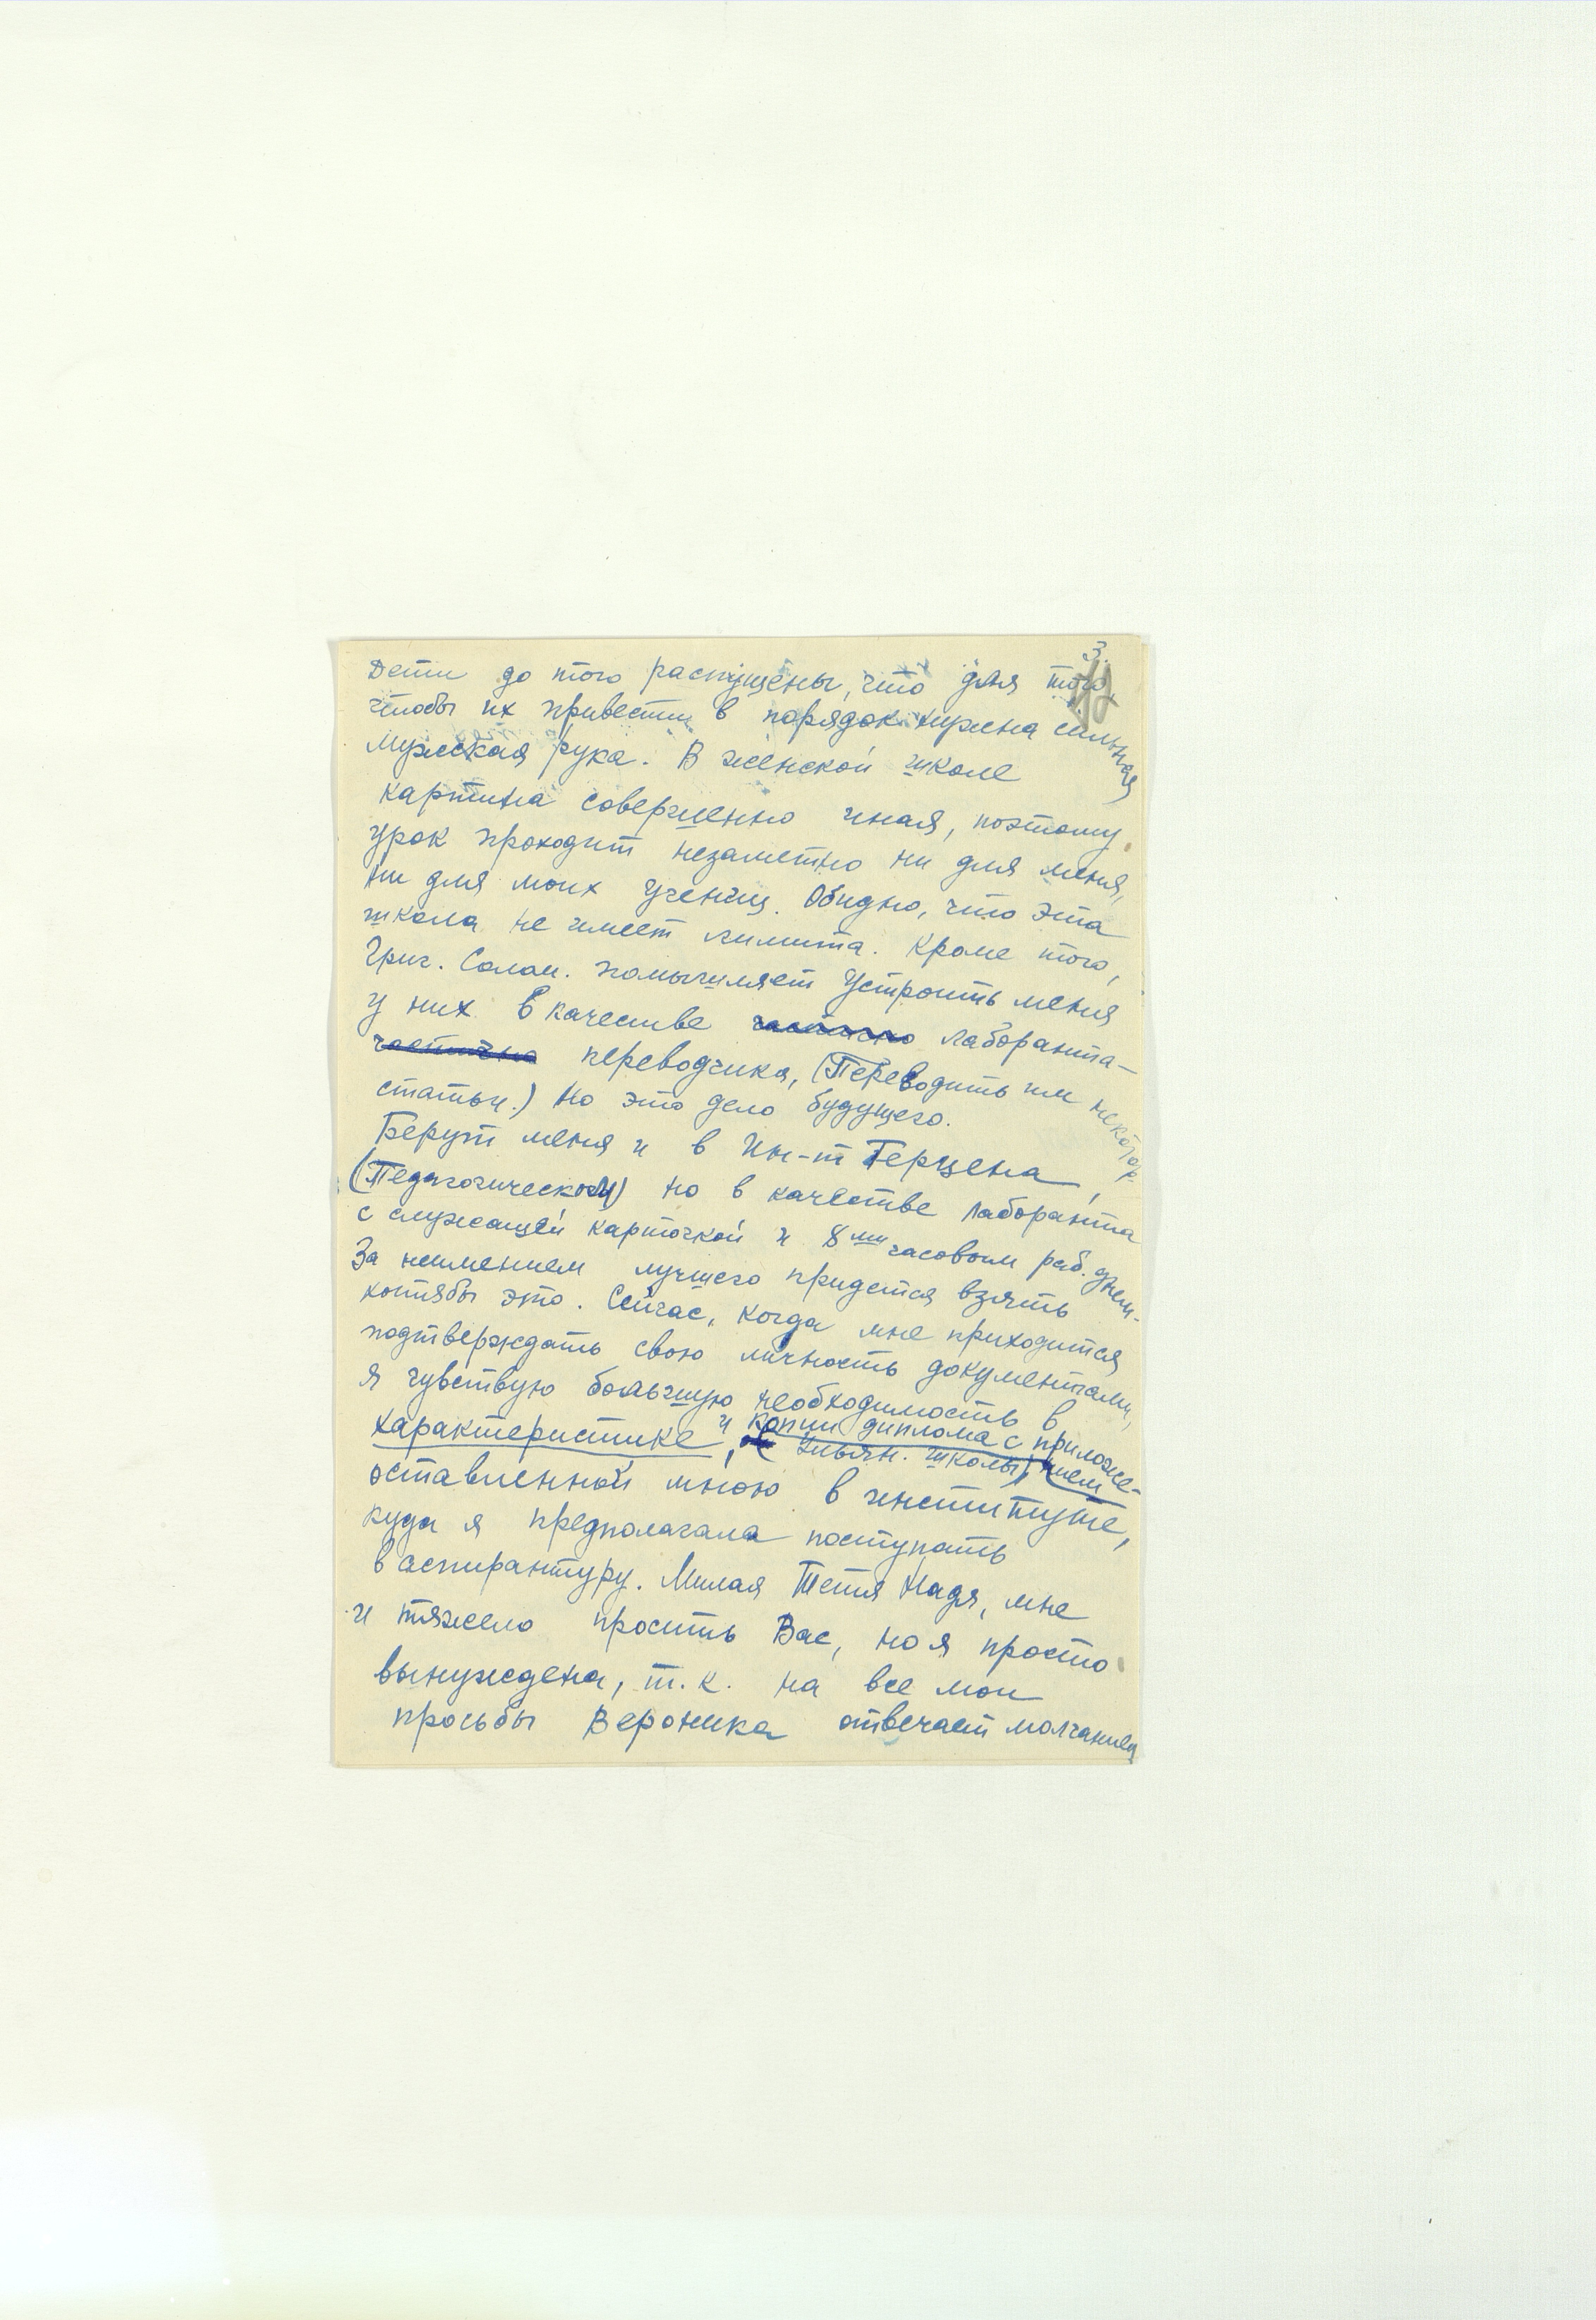 3.
Дети до того распущены, что для того,
чтобы их привести в порядок нужна сильная
мужская рука. В женской школе
картина совершенно иная, поэтому
урок проходит незаметно ни для меня,
ни для моих учениц. Обидно, что эта
школа не имеет лимита. Кроме того,
Григ. Солом. помышляет устроить меня
у них в качестве частично лаборанта-
частично переводчика, (Переводить им некотор.
статьи.) Но это дело будущего.
Берут меня и в Ин-т Герцена,
(Педагогический) но в качестве лаборанта
с служащей карточкой и 8ми часовым раб. днем.
За неимением лучшего придется взять
хотябы это. Сейчас, когда мне приходится
подтверждать свою личность документами,
я чувствую большую необходимость в
характеристике, и копии диплома с приложе-
нием Ульян. школы,
оставленной мною в институте,
куда я предполагала поступать
в аспирантуру. Милая Тетя Надя, мне
и тяжело просить Вас, но я просто
вынуждена, т.к. на все мои
просьбы Вероника отвечает молчанием